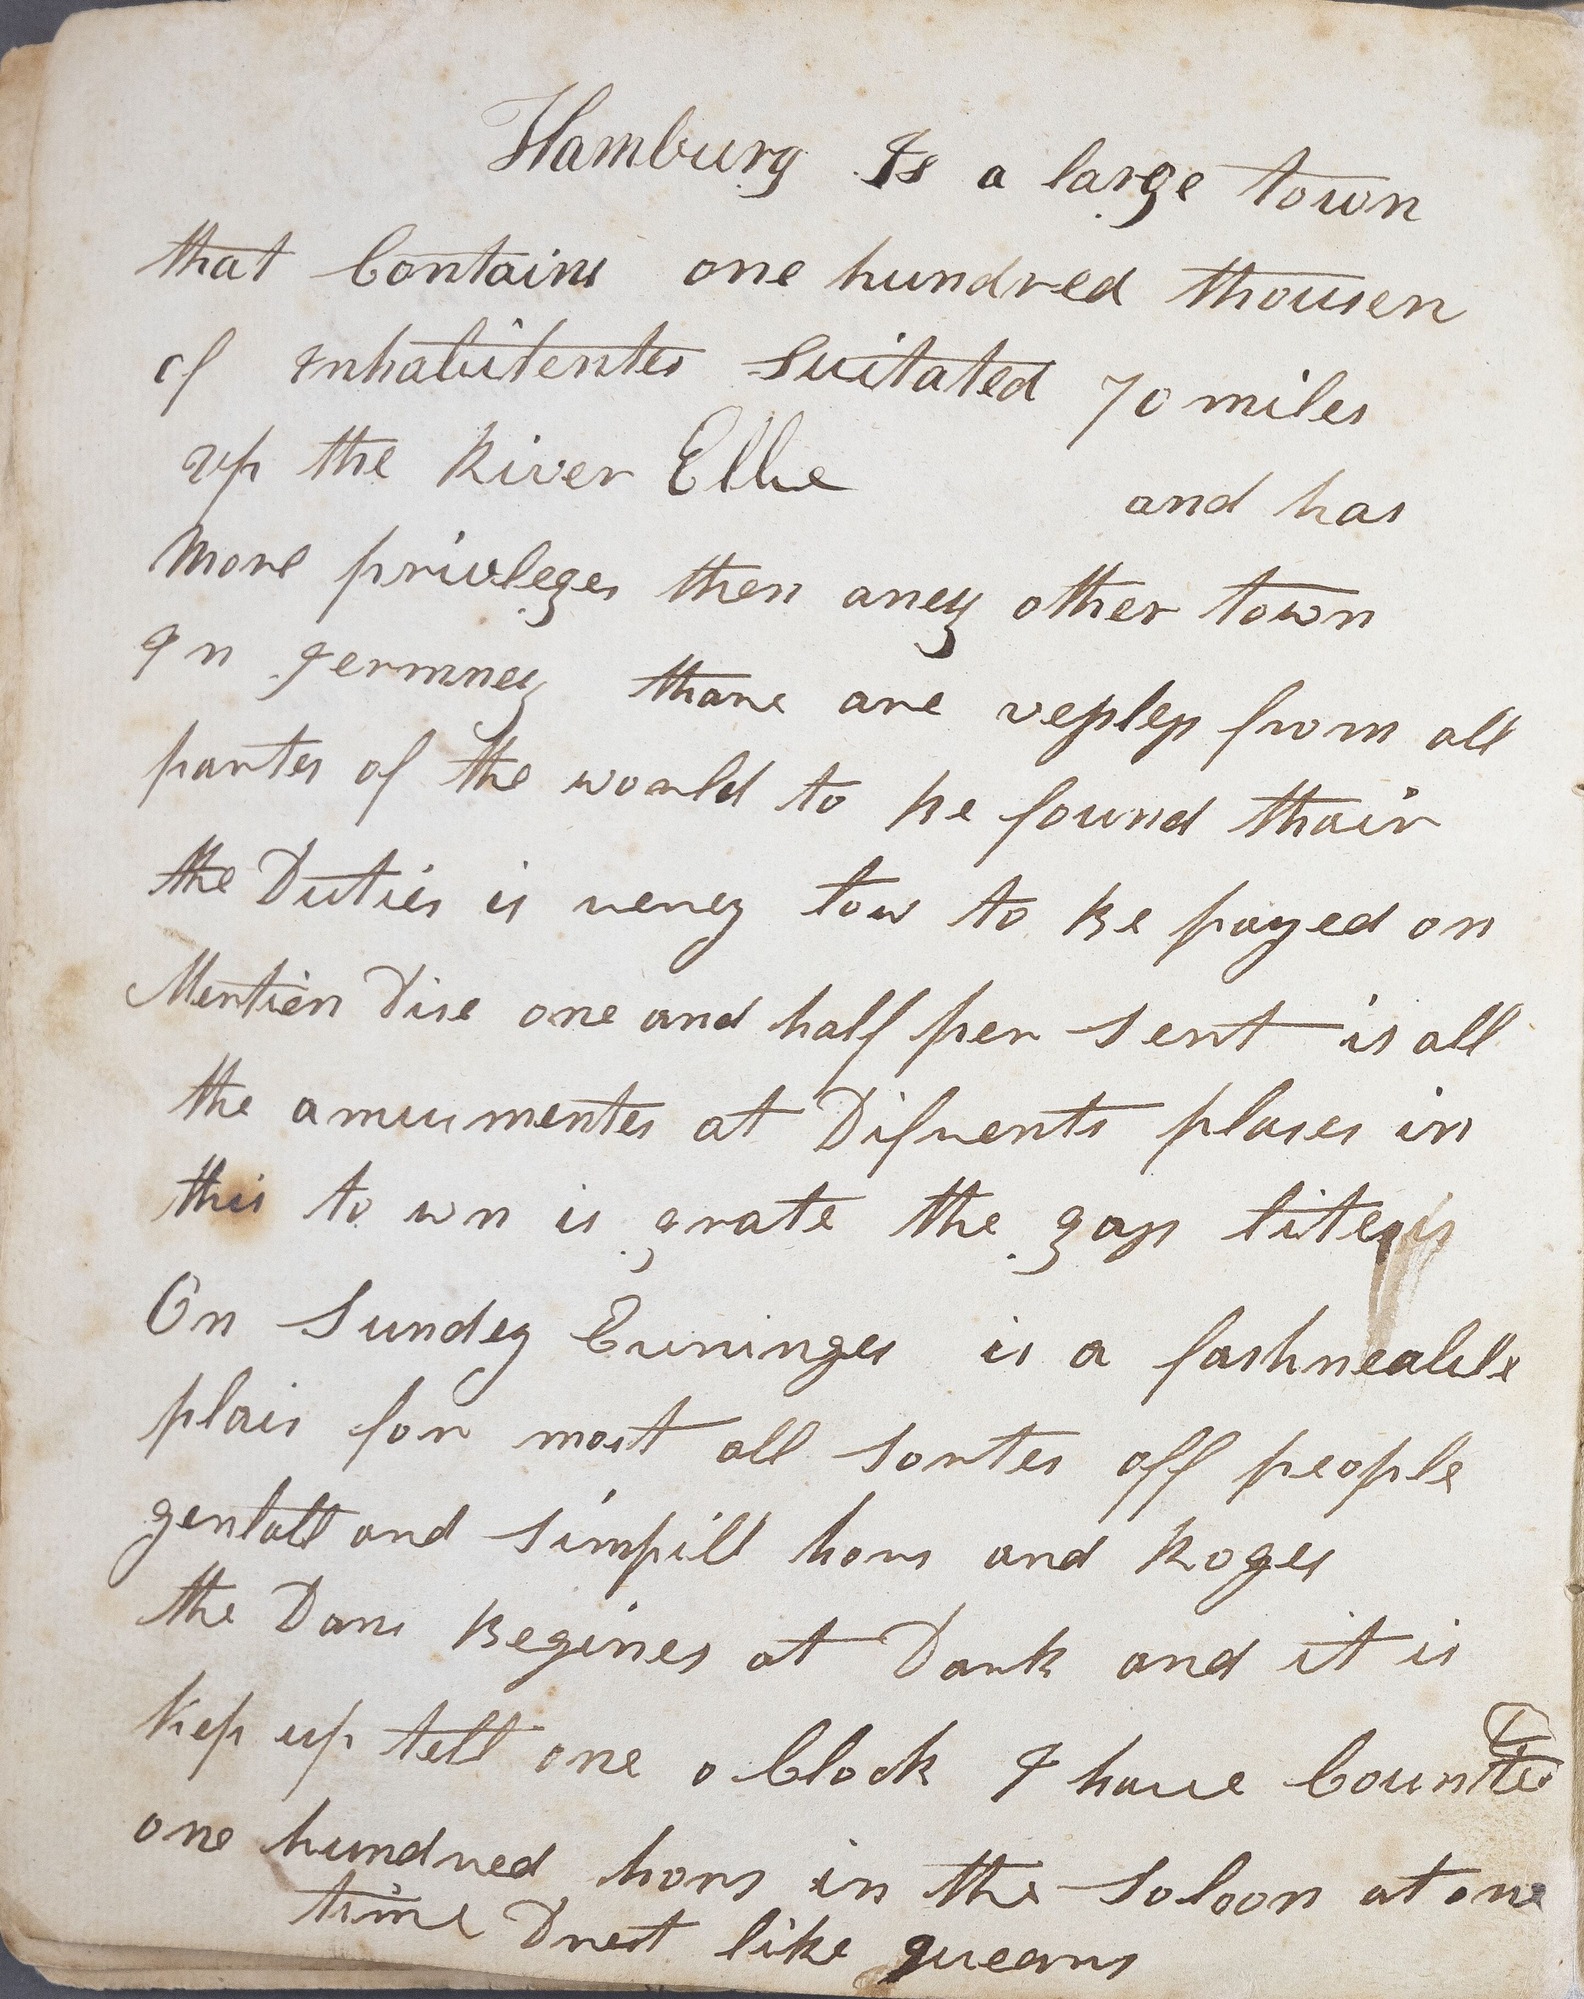 Hamburg Is a large town
that Contains one hundred thousen
of inhabitentes Suitated 70 miles
up the River Elbe and has
More privleges then aney other town
In germney thare are peples from all
partes of the woarld to be found thair
the Duties is verey low to be payed on
Dise one and half per sent is all
the amusmentes at Difrents plases in
this to wn is grate the gap
On Sundey Evninges is a fashneable
plais for most all sortes off people
gentall and simpill hors and Roges
the Dans Begines at Dark and it is
kep up tell one o Clock I have Countted
one hundred hors in the Saloon at one
time Drest like queens